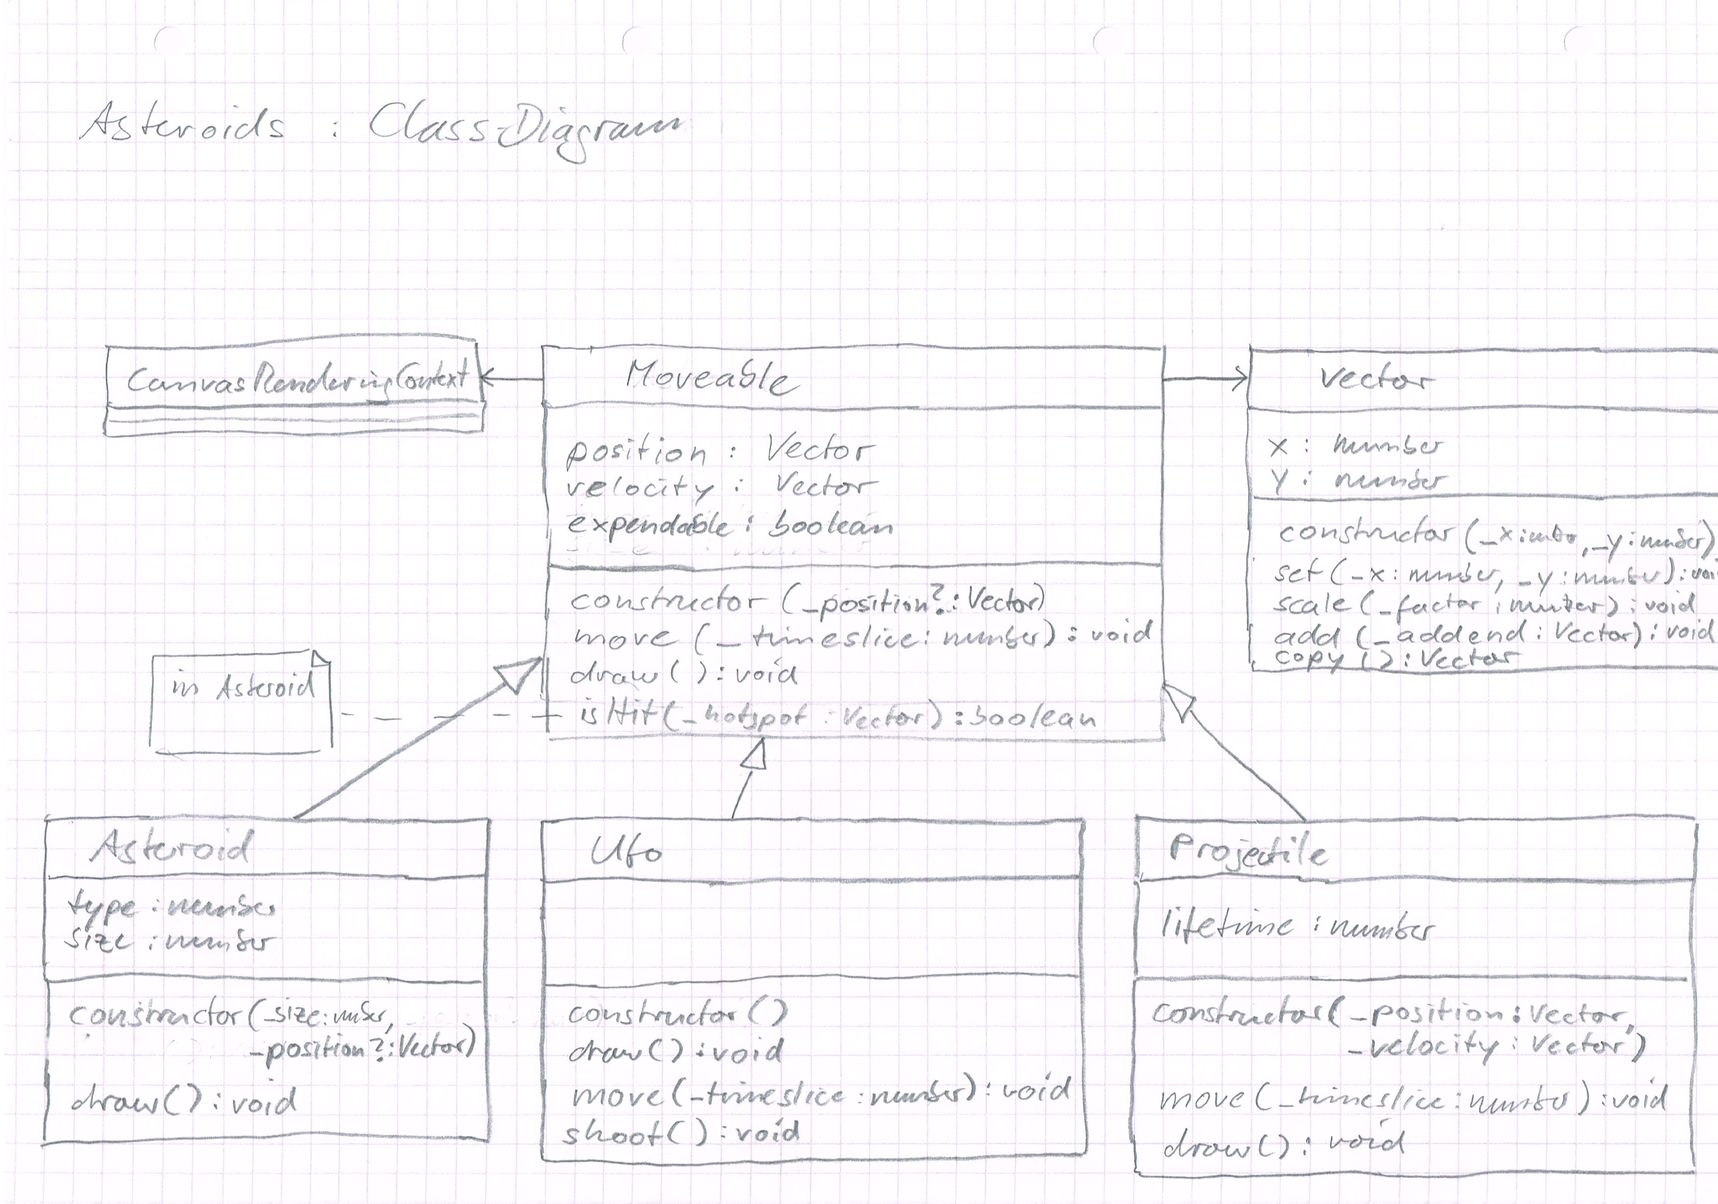 Asteroids : Class-Diagram
CanvasRenderingContext
Moveable
position : Vector
velocity : Vector
expendable : boolean
constructor (_position? : Vector)
move (_timeslice : number) : void
draw () : void
isHit (_hotspot : Vector) : boolean
Vector
x : number
y : number
constructor (_x : , _y : number)
set (_x : number, _y : number) : voi
scale (_factor : number) : void
add (_addend : Vector) : void
copy () : Vector
in Asteroid
Asteroid
type : number
size : number
constructor (_size : number,
_position? : Vector)
draw () : void
Ufo
constructor ()
draw () : void
move (_timeslice : number) : void
shoot () : void
Projectile
lifetime : number
constructor (_position : Vector,
_velocity : Vector)
move (_timeslice : number) : void
draw () : void